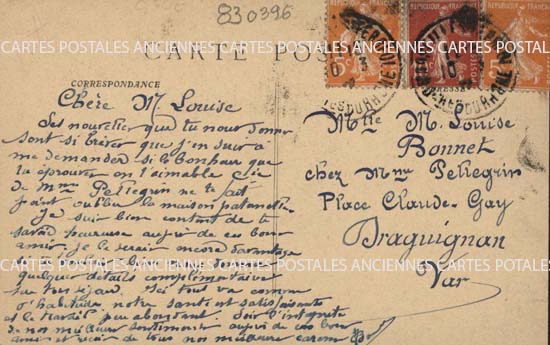 830396
CARTE POS
CORRESPONDANCE
CARTES POSTALES ANCIENNES CARTES POSTALES ANCIENNES CARTES POSTALES
Chère M. Louise
Les nouvelles que tu nous donne
sont si brèves que j'en suis à
me demander si le bonheur que
tu éprouves en l'aimable Cie
de Mme Pellegrin ne te fait
point oublier la maison paternelle
Je suis bien content de te
savoir heureuse auprès de ces bons
amis. je le serais encore davantage
quelques détails complémentaires
sur ton séjour. Ici tout va comme
d'habitude notre santé est satisfaisante
et le travail peu abondant. Sois l'interprète
de nos meilleurs sentiments auprès de ces bons
amis et reçois de tous nos meilleures caresses
Mlle M. Louise
Bonnet
chez Mme Pellegrin
Place Claude-Gay
Draguignan
CARTES POSTALES ANCIENNES CARTES POSTALES ANCIENNES CARTES POSTALES
Var